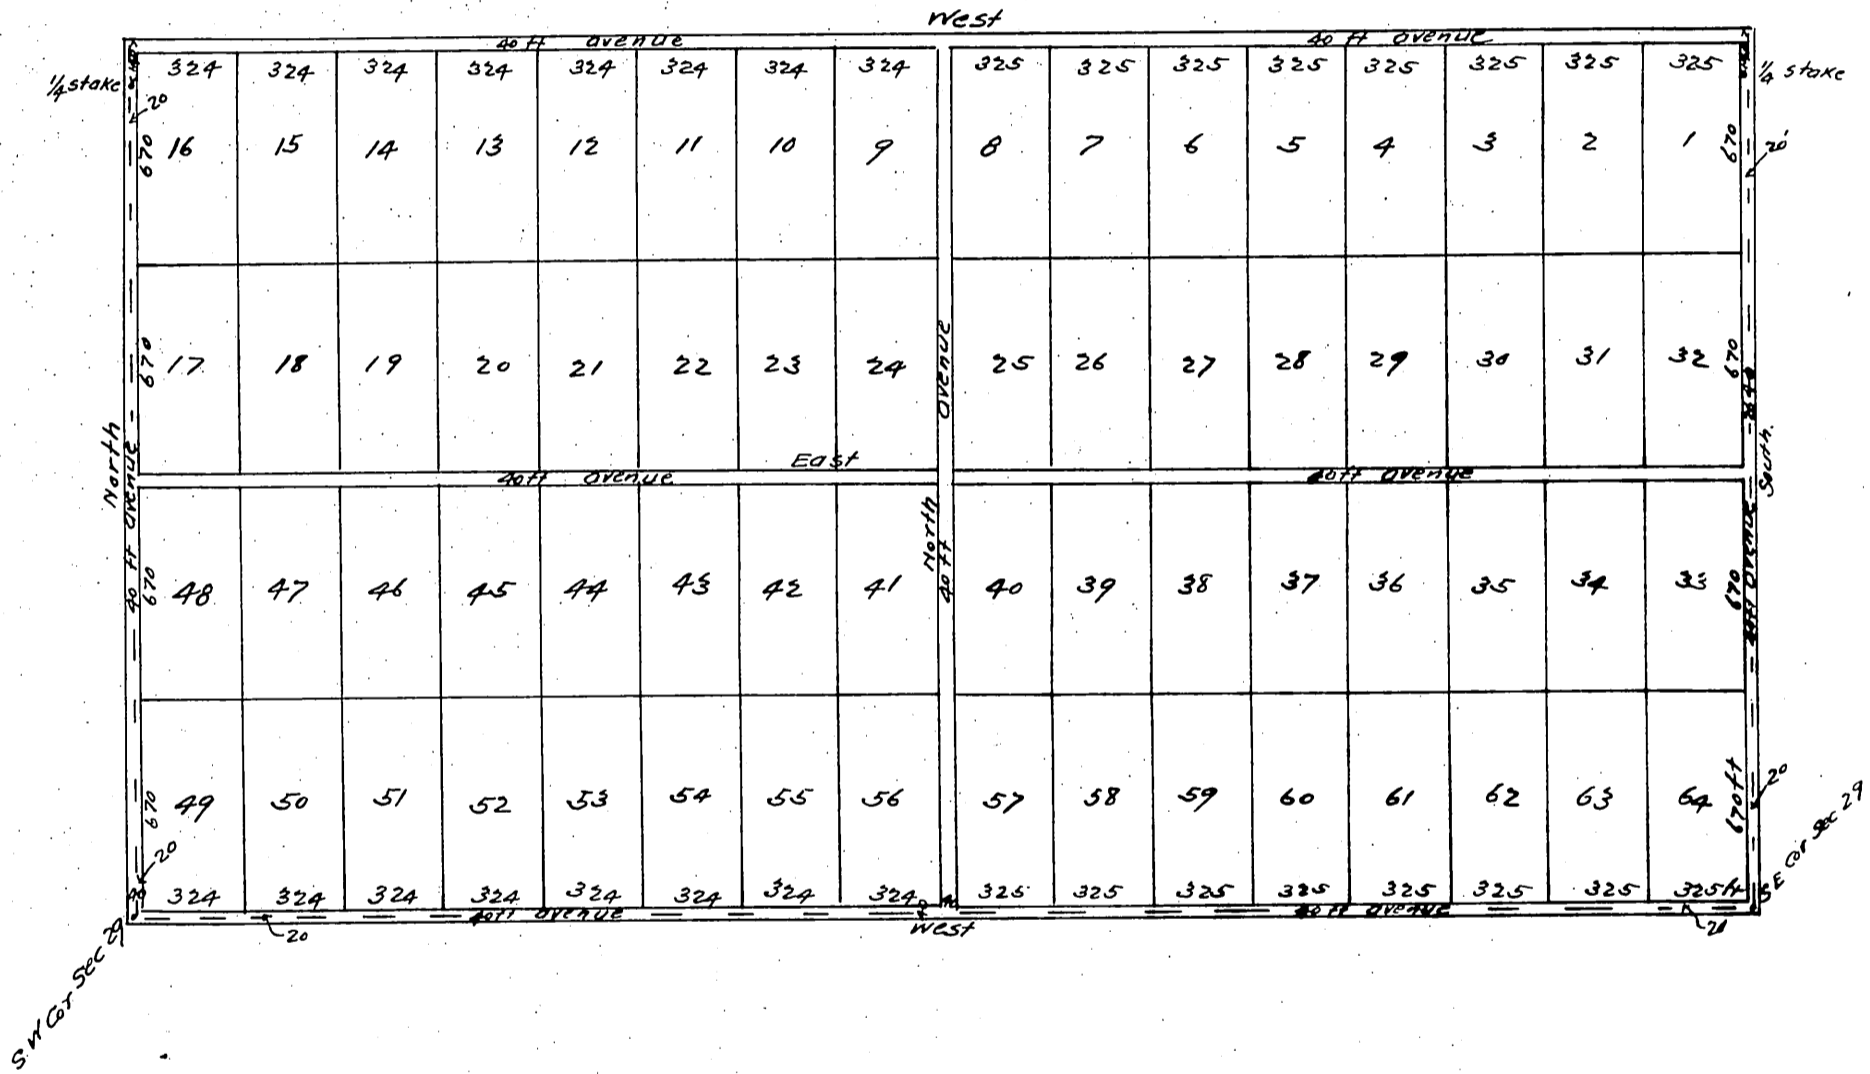 West
40 ft avenue 40 ft avenue
324 324 324 324 324 324 324 324 325 325 325 325 325 325 325 325
1/4 stake 1/4 stake
20 20'
670 16 15 14 13 12 11 10 9 8 7 6 5 4 3 2 1 670
670 17 18 19 20 21 22 23 24 25 26 27 28 29 30 31 32 670
North 40 ft avenue
North 40 ft avenue
2640
South.
East
40 ft avenue 40 ft avenue
40 ft avenue
670 48 47 46 45 44 43 42 41 40 39 38 37 36 35 34 33 670
670 49 50 51 52 53 54 55 56 57 58 59 60 61 62 63 64 670 ft
20 20
324 324 324 324 324 324 324 324 325 325 325 325 325 325 325 325 ft
40 ft avenue 40 ft avenue
20 West 20
S.W Cor Sec 29 S E Cor Sec 29